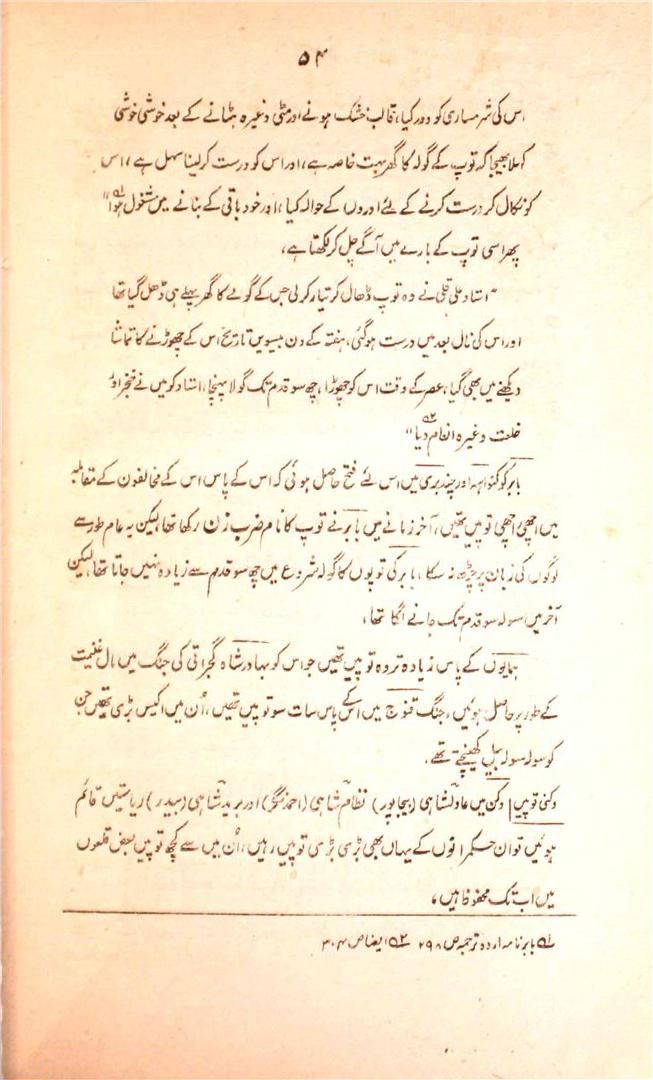 ۵۴
اس کی شرمساری کو دور کیا، قالب خشک ہونے اور مٹی وغیرہ ہٹانے کے بعد خوشی خوشی
کہلا بھیجا کہ توپ کے گولہ کا گھر بہت خاصہ ہے، اور اس کو درست کرلینا سہل ہے، اس
کو نکال کر درست کرنے کے لئے اوروں کے حوالہ کیا، اور خود باقی کے بنانے میں مشغول ہوا"۱؎
پھر اسی توپ کے بارے میں آگے چل کر لکھتا ہے،
"استاد علی قلی نے وہ توپ ڈھال کر تیار کر لی جس کے گولے کا گھر پہلے ہی ڈھل گیا تھا
اور اس کی نال بعد میں درست ہوگئی، ہفتہ کے دن بیسویں تاریخ اس کے چھوڑنے کا تماشا
دیکھنے میں بھی گیا، عصر کے وقت اس کو چھوڑا، چھ سو قدم تک گولا پہنچا، استاد کو میں نے خنجر اور
خلعت وغیرہ انعام دیا"۲؎
بابر کو کنواہہ اور چندیری میں اس لئے فتح حاصل ہوئی کہ اس کے پاس اس کے مخالفون کے مقابلہ
میں اچھی اچھی توپیں تھیں، آخر زمانے میں بابر نے توپ کا نام ضرب زن رکھا تھا، لیکن یہ عام طور سے
لوگوں کی زبان پر چڑھ نہ سکا، بابر کی توپوں کا گولہ شروع میں چھ سو قدم سے زیادہ نہیں جاتا تھا، لیکن
آخر میں سولہ سو قدم تک جانے لگا تھا،
ہمایوں کے پاس زیادہ تر وہ توپیں تھیں جو اس کو بہادر شاہ گجراتی کی جنگ میں مال غنیمت
کے طور پر حاصل ہوئیں، جنگ قنوج میں اس کے پاس سات سو توپیں تھیں، اُن میں اکیس بڑی تھیں جن
کو سولہ سولہ بیل کھینچتے تھے۔
دکنی توپیں| دکن میں عادلشاہی (بیجاپور) نظام شاہی (احمدنگر) اور برید شاہی (بیدر) ریاستیں قائم
ہوئیں تو ان حکمرانوں کے یہاں بھی بڑی بڑی توپیں رہیں، اُن میں سے کچھ توپیں بعض قلعوں
میں اب تک محفوظ ہیں،
۱؎ بابر نامہ اردو ترجمہ ص ۲۹۸ ۲؎ ایضا ص ۳۰۴